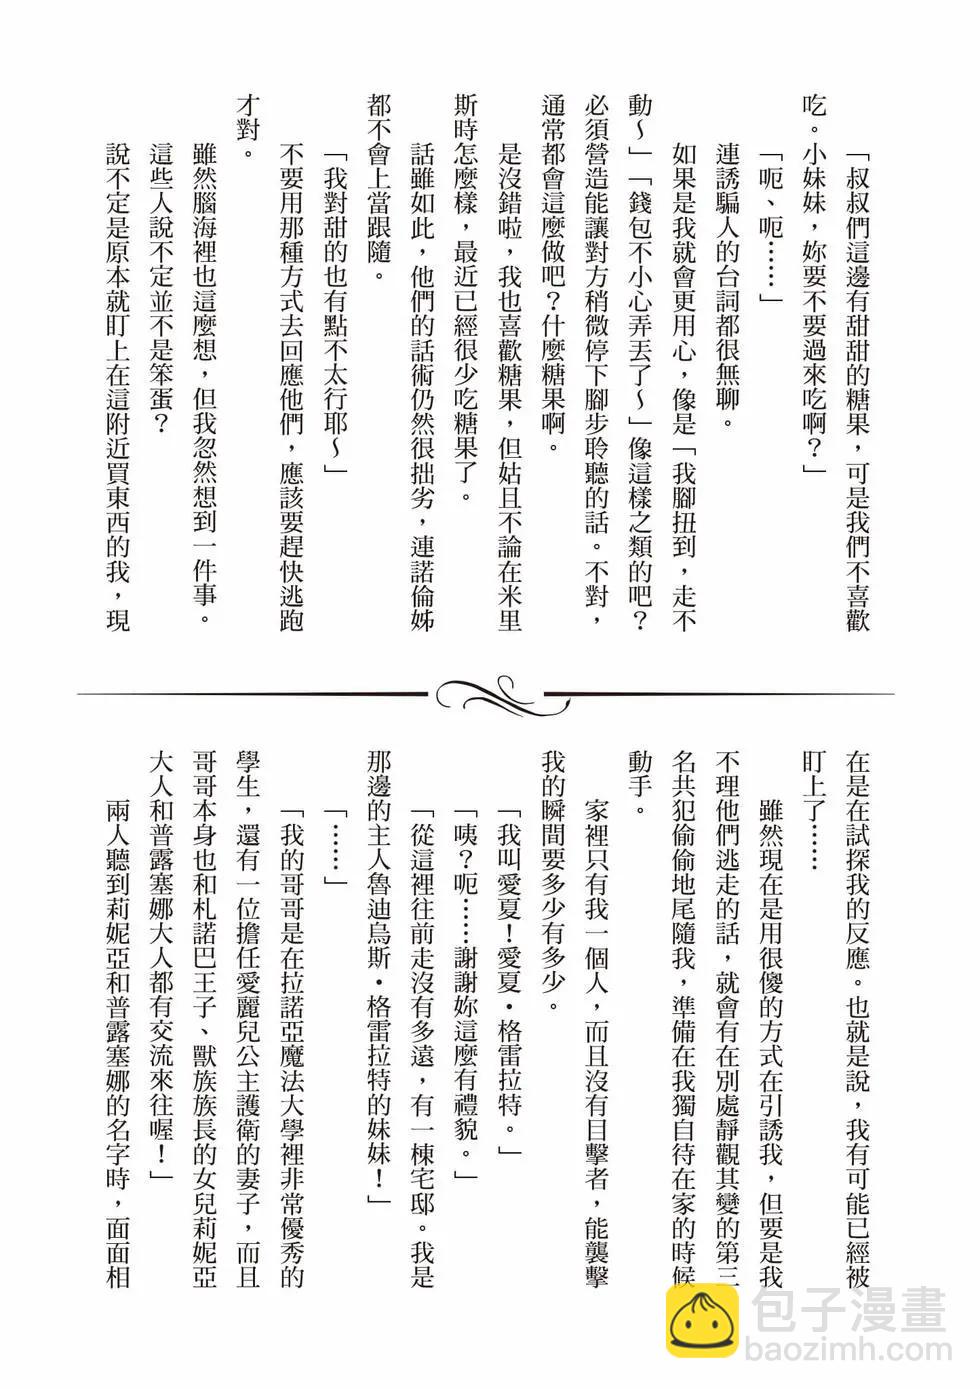 「叔叔們這邊有甜甜的糖果，可是我們不喜歡
吃。小妹妹，妳要不要過來吃啊？」
「呃、呃……」
連誘騙人的台詞都很無聊。
如果是我就會更用心，像是「我腳扭到，走不
動～」「錢包不小心弄丟了～」像這樣之類的吧？
必須營造能讓對方稍微停下腳步聆聽的話。不對，
通常都會這麼做吧？什麼糖果啊。
是沒錯啦，我也喜歡糖果，但姑且不論在米里
斯時怎麼樣，最近已經很少吃糖果了。
話雖如此，他們的話術仍然很拙劣，連諾倫姊
都不會上當跟隨。
「我對甜的也有點不太行耶～」
不要用那種方式去回應他們，應該要趕快逃跑
才對。
雖然腦海裡也這麼想，但我忽然想到一件事。
這些人說不定並不是笨蛋？
說不定是原本就盯上在這附近買東西的我，現
在是在試探我的反應。也就是說，我有可能已經被
盯上了……
雖然現在是用很傻的方式在引誘我，但要是我
不理他們逃走的話，就會有在別處靜觀其變的第三
名共犯偷偷地尾隨我，準備在我獨自待在家的時候
動手。
家裡只有我一個人，而且沒有目擊者，能襲擊
我的瞬間要多少有多少。
「我叫愛夏！愛夏・格雷拉特。」
「咦？呃……謝謝妳這麼有禮貌。」
「從這裡往前走沒有多遠，有一棟宅邸。我是
那邊的主人魯迪烏斯・格雷拉特的妹妹！」
「……」
「我的哥哥是在拉諾亞魔法大學裡非常優秀的
學生，還有一位擔任愛麗兒公主護衛的妻子，而且
哥哥本身也和札諾巴王子、獸族族長的女兒莉妮亞
大人和普露塞娜大人都有交流來往喔！」
兩人聽到莉妮亞和普露塞娜的名字時，面面相
包子漫畫
baozimh.com